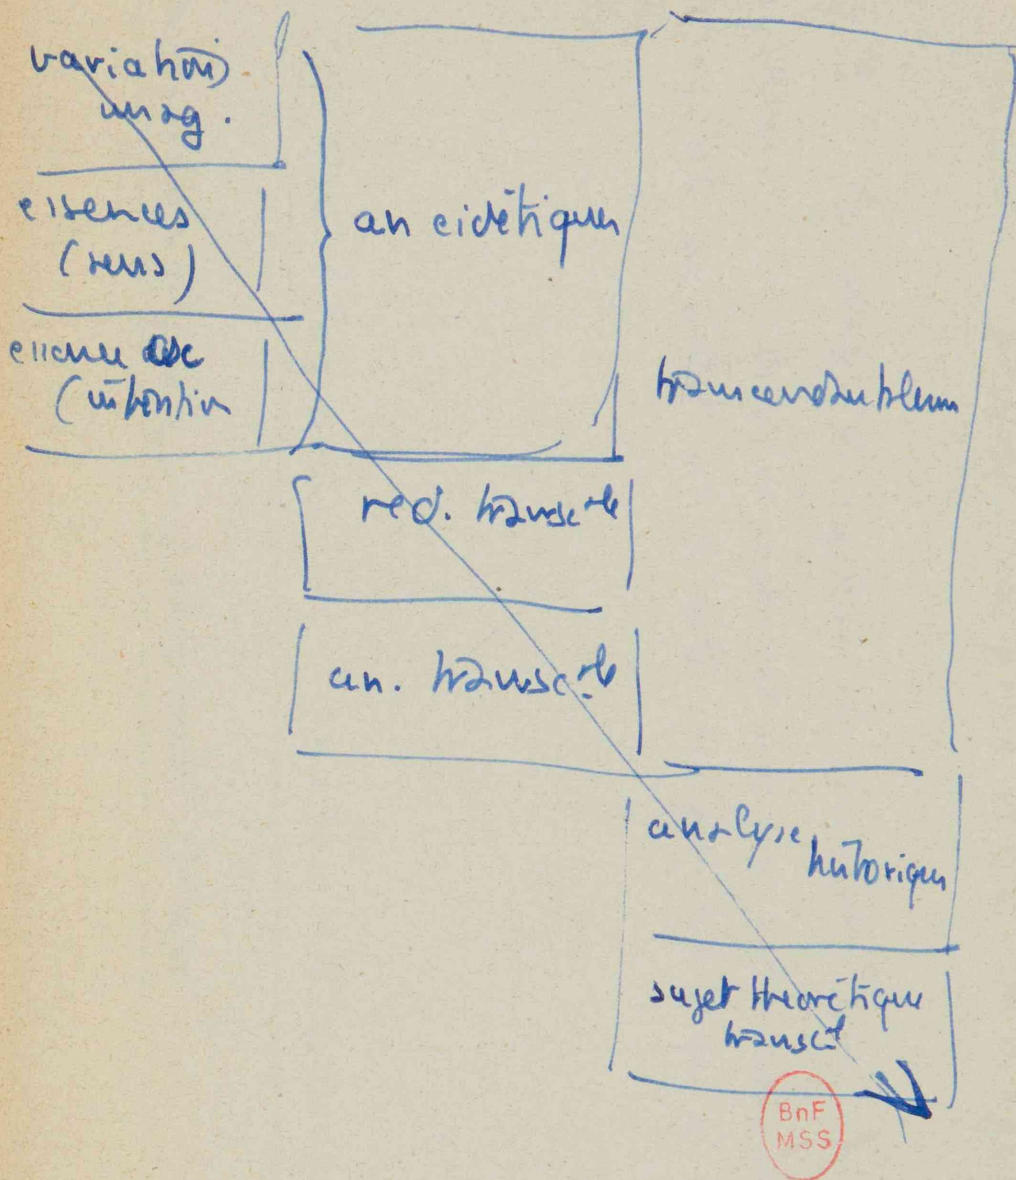 variations
imag.
essences
(sens)
essence
(intention
an eidétiques
transcendantalem
réd. transc^ale
an. transc^ale
analyse
historique
sujet théorétique
transc^al
BnF
MSS